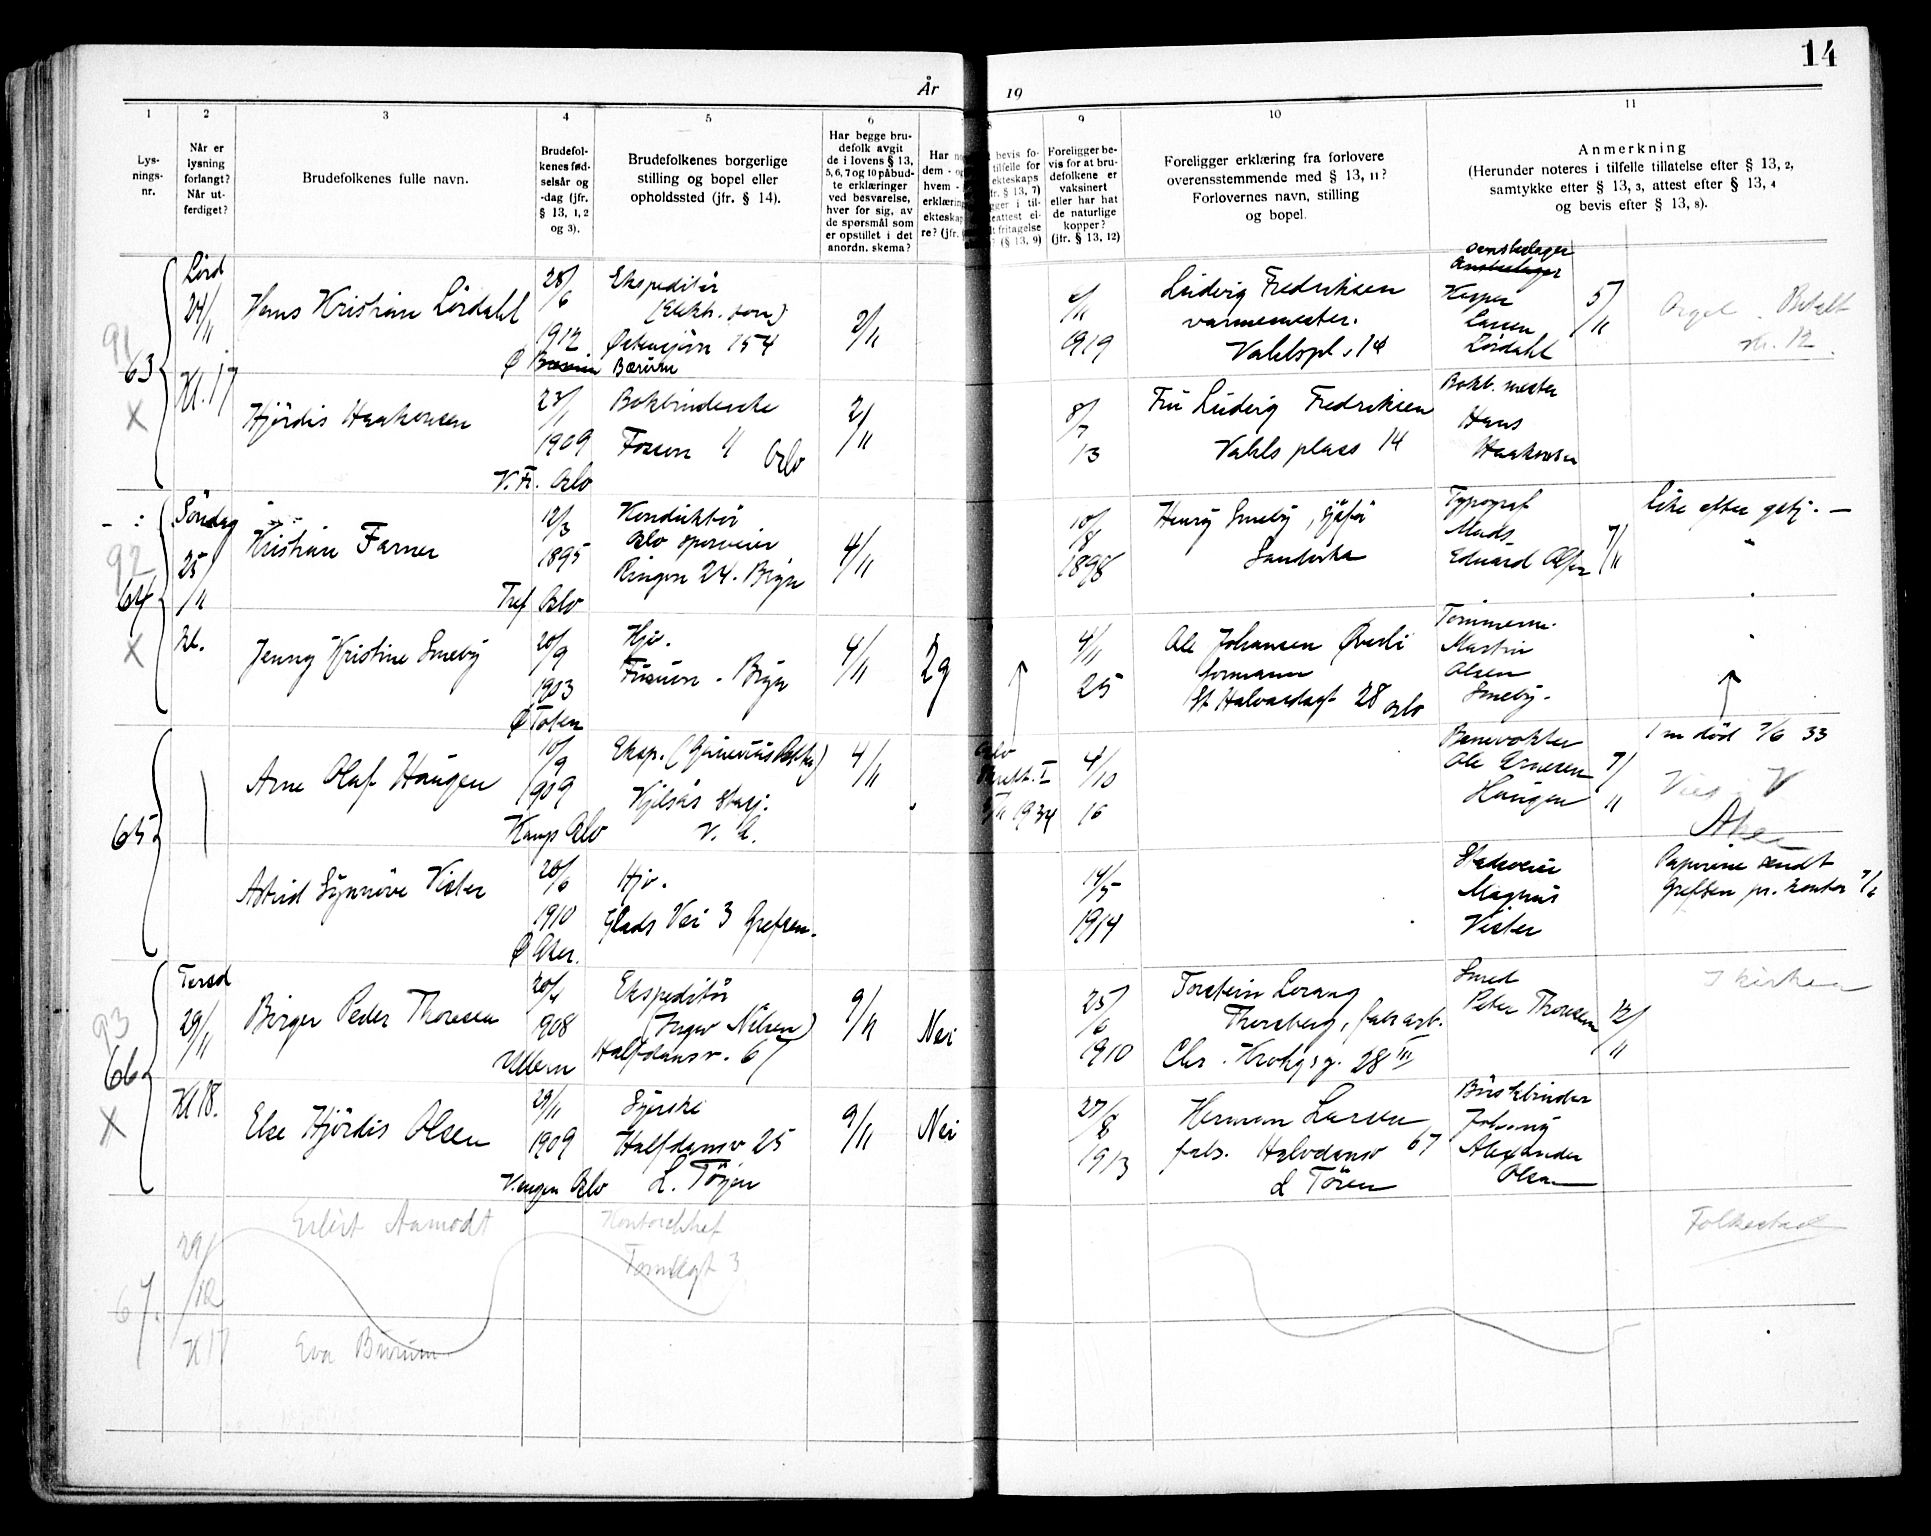 14
År 19
1
Lys-
nings-
nr.
2
Når er
lysning
forlangt?
Når ut-
ferdiget?
3
Brudefolkenes fulle navn.
4
Brudefol-
kenes fød-
selsår og
-dag (jfr.
§ 13, 1, 2
og 3).
5
Brudefolkenes borgerlige
stilling og bopel eller
opholdssted (jfr. § 14).
6
Har begge bru-
defolk avgit
de i lovens § 13,
5, 6, 7 og 10 påbud-
te erklæringer
ved besvarelse,
hver for sig, av
de spørsmål som
er opstillet i det
anordn. skema?
Har
dem -
hvem -
erklæring
ekteskap
re? (jfr.
8
bevis fo-
tilfelle for
ekteskaps
fr. § 13, 7)
gger i til-
eattest el-
t fritagelse
(§ 13, 9)
9
Foreligger be-
vis for at bru-
defolkene er
vaksinert
eller har hat
de naturlige
kopper?
(jfr. § 13, 12)
10
Foreligger erklæring fra forlovere
overensstemmende med § 13, 11?
Forlovernes navn, stilling
og bopel.
11
Anmerkning
(Herunder noteres i tilfelle tillatelse efter § 13, 2,
samtykke efter § 13, 3, attest efter § 13, 4
og bevis efter § 13, 8).
91
63
X
Lørd
24/11
Kl. 17
Hans Kristian Lördahl
28/6
1912
Ø Bærum
Ekspeditör
Østensjøvn 154
2/11
1919
Ludvig Fredriksen
varmemester.
Vahlspl. 14
Kasper
Larsen
Lördahl
5/11
Orgel. Betalt
kr. 12
Hjördis Haakonsen
23/1
1909
V. Fr. Oslo
Bokbinderske
Oslo
2/11
8/7
13
Fru Ludvig Fredriksen
Vahls plass 14
Bokb. mester
Hans
Haakonsen
92
64
X
Söndag
25/11
kl.
Kristian Farner
12/3
1895
Tref Oslo
Konduktör
Oslo sporveier
Ringvn 24. Bryn
4/11
10/8
1898
Henry Smeby, Sjåför
Sandvika
Typograf
Mads
Edvard Olsen
7/11
like efter gstj. —
Jenny Kristine Smeby
20/9
1903
Ø Toten
Hjv.
Bryn
4/11
29
4/11
25
Ole Johansen Øverli
formann
St Halvardsgt 28 Oslo
Tömmerm.
Martin
Olsen
Smeby.
65
Arne Olaf Haugen
10/9
1909
Kamp Oslo
Eksp.
Kjelsås stasj.
V. A.
4/11
Oslo
1934
4/10
16
Banevokter
Ole Arnesen
Haugen
7/11
1 m död 7/6 33
Aker
Astrid Synnöve Vister
20/6
1910
Ø Aker.
Hjv.
Glads Vei 3 Grefsen.
14/5
1914
Magnus
Vister
Papirene sendt
Grefsen pr. kontor 7/6
93
66
X
Torsd
29/11
Kl 18.
Birger Peder Thoresen
20/4
1908
Ullern
Ekspeditör
(Ingv Nilsen)
Halfdansv. 67
9/11
Nei
25/6
1910
Torstein Lorang
Thorsberg, fabr.arb.
Chr. Krohgsg. 28 III
Smed
Peter Thoresen
12/11
I kirken
Else Hjördis Olsen
29/11
1909
V.engen Oslo
Syerske
Halfdansv 25
L. Töyen
9/11
Nei
27/8
1913
Herman Larsen
fabr. Halvdansv 67
L Töien
Börstebinder
Johnny
Alexander
Olsen
67.
29/12
Kl 17
Eilert Aamodt
Kontorchef
3
Folkestad
Eva Bwrum